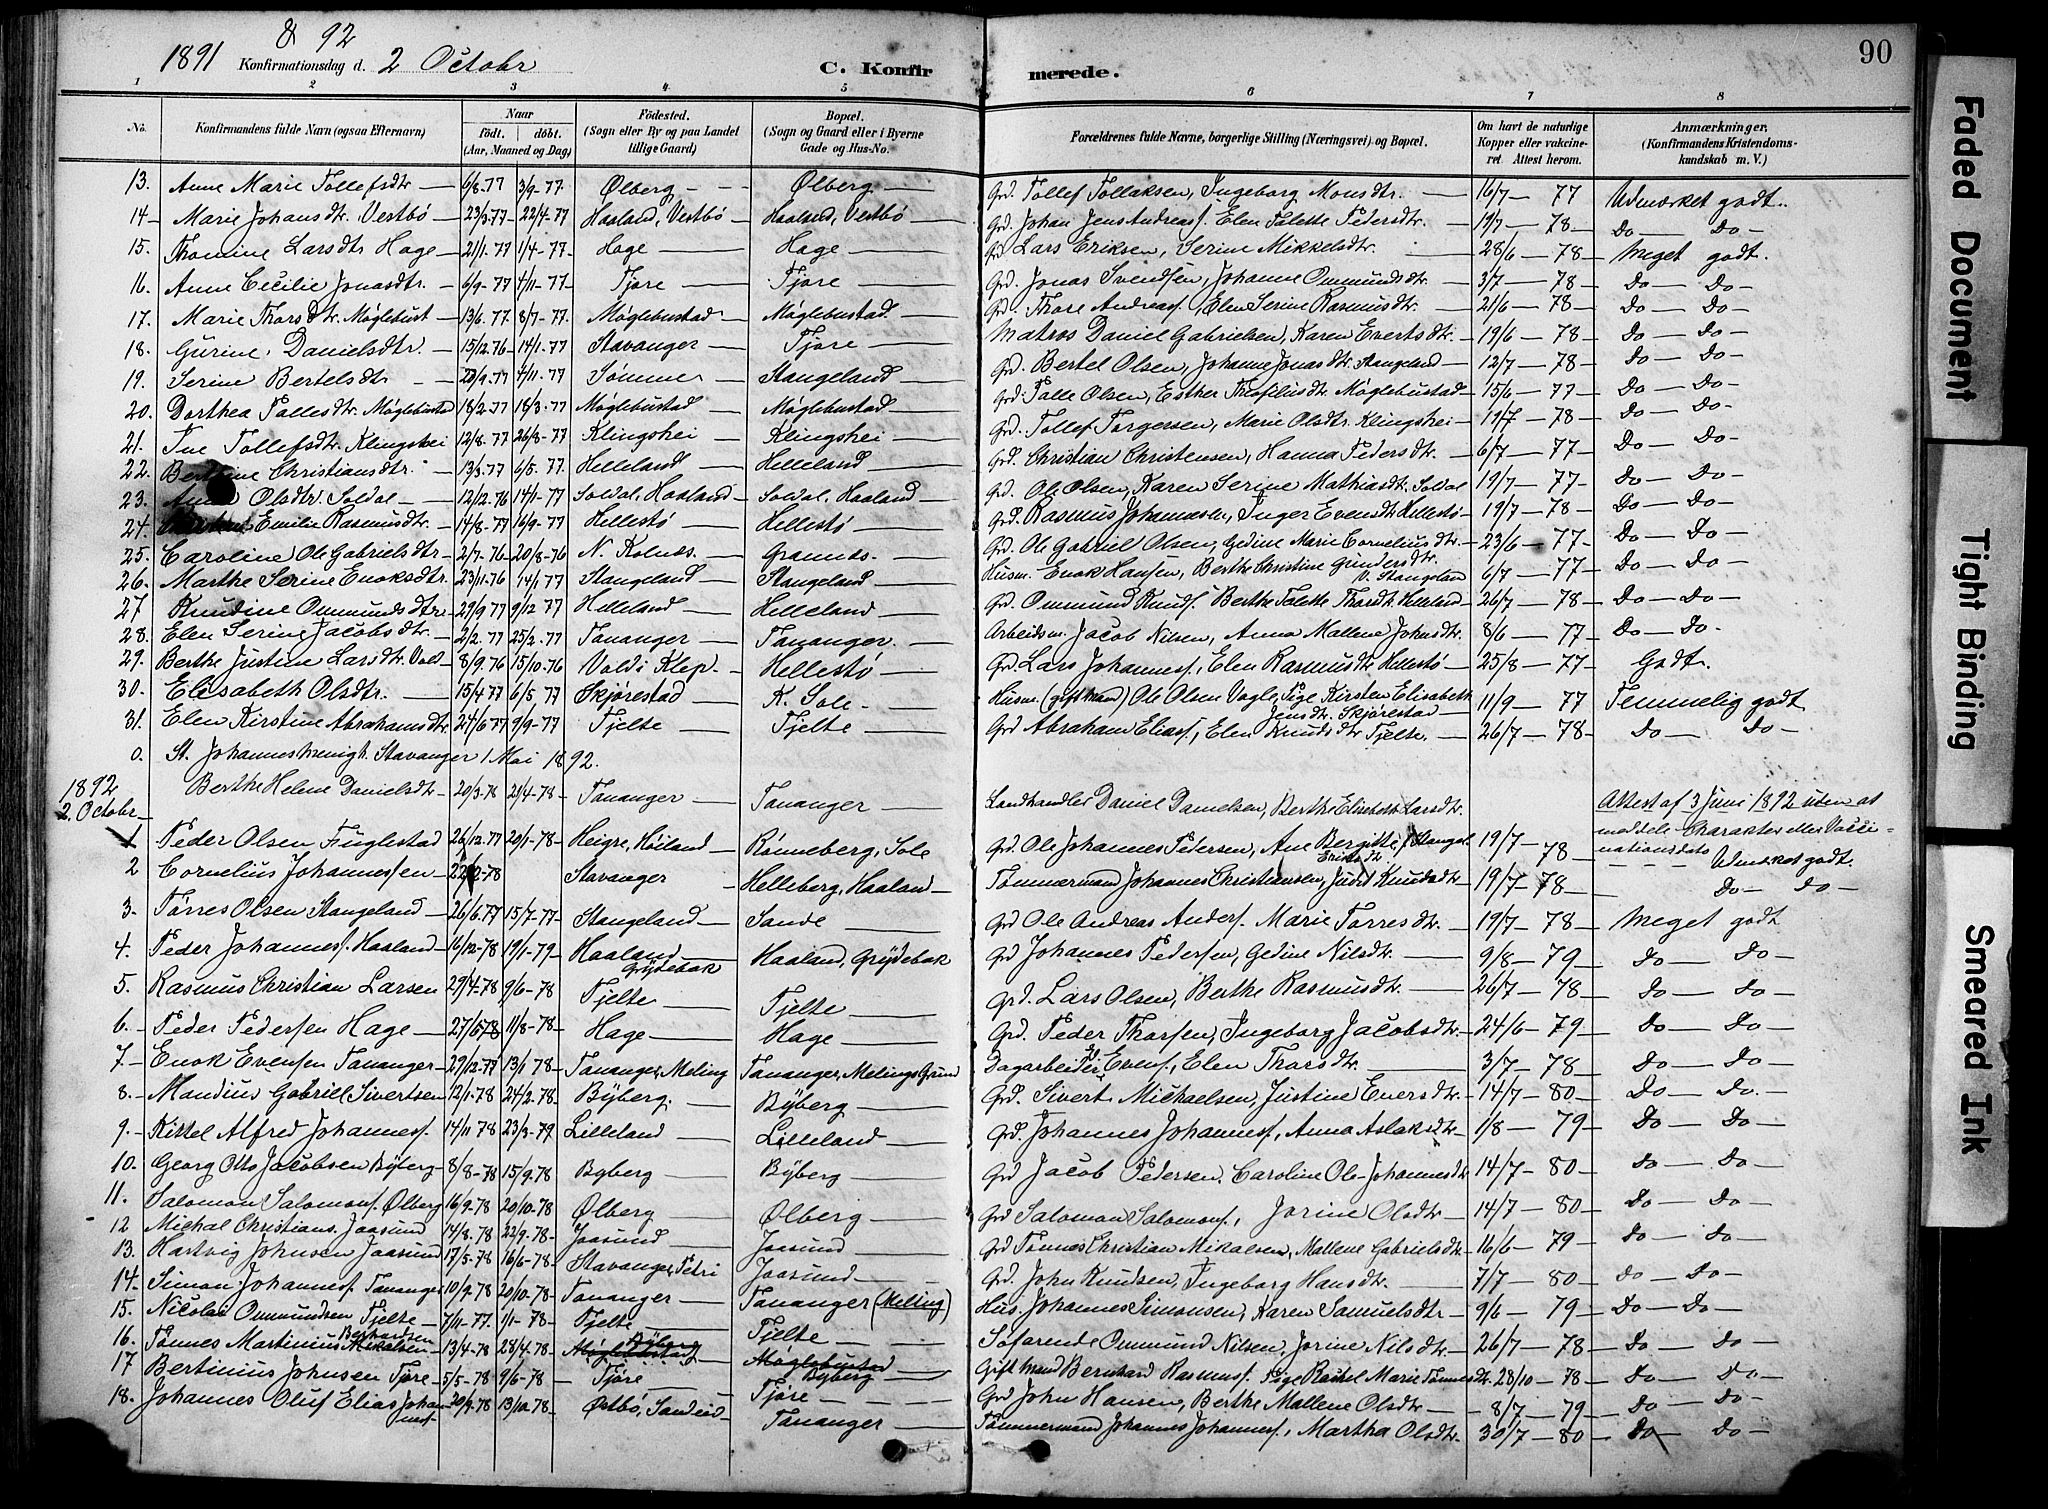 1891 & 92
Konfirmationsdag d. 2 Octobr
C. Konfirmerede.
90
1 2 3 4 5 6 7 8
No.
Konfirmandens fulde Navn (ogsaa Efternavn)
Naar
födt. döbt.
(Aar, Maaned og Dag)
Födested.
(Sogn eller By og paa Landet
tillige Gaard)
Bopæl.
(Sogn og Gaard eller i Byerne
Gade og Hus-No.
Forældrenes fulde Navne, borgerlige Stilling (Næringsvei) og Bopæl.
Om havt de naturlige
Kopper eller vakcine-
ret Attest herom.
Anmærkninger.
(Konfirmandens Kristendoms-
kundskab m. V.)
13. Anne Marie Tollefsdtr — 6/8-77 3/9-77 Ølberg — Ølberg — Grd. Tollef Tollaksen, Ingeborg Monsdtr. — 16/7 — 77 Udmærket godt.
14 — Marie Johansdtr. Vestbø — 23/3-77 22/4-77 Haaland, Vestbø — Haaland, Vestbø — Grd. Johan Jens Andreasf. Elen Talette Pedersdtr. 19/7 — 78 — Do — Do —
15. Thomine Larsdtr Hage — 21/1 77 1/4-77 Hage — Hage — Grd Lars Eriksen, Serine Mikkelsdtr. 28/6 — 78 Meget godt.
16. Anne Cecilie Jonasdtr. 6/9-77 4/11-77 Tjore — Tjore — Grd. Jonas Svendsen, Johanne Ommundsdtr — 3/7 — 78 Do — Do —
17. Marie Thorsdtr. Møglebust — 13/6 77 8/7-77. Møglebustad — Møglebustad — Grd. Thore Andreasf. Elen Serine Rasmusdtr. 21/6 — 78 Do — Do —
18. Gurine Danielsdtr. — 15/12.76 14/1-77 Stavanger — Tjore — Matros Daniel Gabrielsen, Karen Evertsdtr. — 19/6 — 78 Do — Do —
19. Serine Bertelsdtr — 20/9-77 4/11-77 Sømme — Stangeland — Grd. Bertel Olsen, Johanne Jonasdtr Stangeland — 12/7 — 78 — Do — Do —
20. Dorthea Tallesdtr. Møglebustad 18/2-77 18/3-77 Møglebustad — Møglebustad — Grd. Talle Olsen, Esther Theofilusdtr Møglebustad — 15/6 — 77 — Do — Do —
21. Ine Tollefsdtr Klingshei 12/8-77 26/8-77 Klingshei — Klingshei — Grd. Tollef Torgersen, Marie Olsdtr. Klingshei — 19/7 — 78 — Do — Do —
22. Christiansdtr. 13/3 77 6/5 77. Helleland — Helleland — Grd. Christian Christensen, Hanna Pedersdtr. — 6/7 — 77 — Do — Do —
23. Olsdtr. Soldal — 12/12.76 14/1-77 Soldal, Haaland — Soldal, Haaland — Grd. Ole Olsen, Karen Serine Mathiasdtr. Soldal 19/7 — 77 — Do — Do —
24. Emilie Rasmusdtr. — 14/8-77 16/9-77 Hellestø — Hellestø — Grd. Rasmus Johannesen, Inger Evensdtr Hellestø — 19/7 — 78 — Do — Do —
25. Caroline Ole Gabrielsdtr — 2/7-76 20/8-76 N. Kolnæs. — Grannæs — Grd. Ole Gabriel Olsen, Gedine Marie Corneliusdtr. — 23/6 — 77 — Do — Do —
26. Marthe Serine Enoksdtr. 23/11-76 14/1 77 Stangeland — Stangeland — Husm. Enok Hansen, Berthe Christine Gundersdtr. V. Stangeland 6/7 — 77 — Do — Do —
27 Knudine Ommundsdtr 29/9 77 9/12 77 Helleland — Helleland — Grd. Ommund Knudsf. Berthe Talette Thorsdtr. Helleland — 26/7 — 78 — Do — Do —
28. Elen Serine Jacobsdtr. — 2/2. 77 25/2. 77 Tananger — Tananger. — Arbeidsm. Jacob Nilsen, Anna Mallene Johnsdtr. 8/6 — 77 — Do — Do —
29. Berthe Justine Larsdtr. Vold — 8/9.76 15/10-76 Vold i Klep. — Hellestø — Grd. Lars Johannesf., Elen Rasmusdtr Hellestø — 25/8 — 77 — Godt.
30. Elisabeth Olsdtr. — 15/4 77 6/5 77 Skjørestad — K. Sole — Husm (gift Mand) Ole Olsen Vagle, Pige Kirsten Elisabeth Jensdtr. Skjørestad — 11/9 — 77 Temmelig godt
31. Elen Kirstine Abrahamsdtr. 24/6 77 9/9-77 Tjelte — Tjelte — Grd Abraham Eliasf., Elen Knudsdtr Tjelte. — 26/7 — 78 — Do — Do —
0. St. Johannes menigh. Stavanger 1 Mai 1892.
1892
2. Octobr
Berthe Helene Danielsdtr — 20/3-78 21/4-78 — Tananger — Tananger — Landhandler Daniel Danielsen, Berthe Elisabeth Larsdtr. Attest af 3 Juni 1892 uden at
meddele Charakter eller Vacci-
nationsdato
1 Peder Olsen Fuglestad 26/12.77 20/1-78 Heigre, Høiland — Rønneberg, Sole Grd. Ole Johannes Pedersen, Ane Bergitte Eriksdtr Stangel. 19/7 — 78 — Udmærket godt.
2 Cornelius Johannessen — -78 Stavanger — Helleberg, Haaland — Tømmermand Johannes Christiansen, Judit Knudsdtr — 19/7 — 78 — Do — Do —
3. Tørres Olsen Stangeland — 26/6.77 15/7-77 — Stangeland — Sande — Grd Ole Andreas Andersf. Marie Torresdtr. — 19/7 — 78 — Meget godt
4. Peder Johannesf. Haaland — 16/12-78 19/1-79 — Haaland Grydebak — Haaland, Grydebak Grd Johannes Pedersen, Gedine Nilsdtr — 9/8 — 79 — Do — Do —
5. Rasmus Christian Larsen 29/4-78 9/6-78 Tjelte — Tjelte — Grd. Lars Olsen, Berthe Rasmusdtr. — 26/7 — 78 — Do — Do —
6. — Peder Pedersen Hage — 27/6 78 11/8-78. Hage — Hage — Grd. Peder Thorsen, Ingeborg Jacobsdtr. — 24/6 — 79 — Do — Do —
7. — Enok Evensen Tananger — 29/12-77 13/1 78 — Tananger, Meling Tananger, Melings Grund Dagarbeider Evensf., Elen Thorsdtr. — 3/7 — 78 — Do — Do —
8. — Mandius Gabriel Sivertsen 12/1-78 24/2-78 Byberg. — Byberg — Grd. Sivert Michaelsen, Justine Enersdtr. — 14/7 — 80 — Do — Do. —
9. — Kittel Alfred Johannesf. 14/11 78 23/3-79 Lilleland — Lilleland — Grd. Johannes Johannesf, Anna Aslaksdtr — 1/8 — 79 — Do — Do —
10. Georg Otto Jacobsen Byberg — 8/8-78 15/9-78 Byberg — Byberg — Grd Jacob Pedersen, Caroline Ole-Johannesdtr 14/7 — 80 — Do — Do —
11. Salomon Salomonsf. Ølberg 16/9-78 20/10-78 Ølberg — Ølberg — Grd Salomon Salomonsf., Jorine Olsdtr — 14/7 — 80 — Do — Do —
12 Michal Christians. Jaasund 14/8-78 22/9-78 Jaasund — Jaasund — Grd Tønnes Christian Mikalsen, Mallene Gabrielsdtr — 16/6 — 79 — Do — Do —
13. Hartvig Johnsen Jaasund 17/5-78 16/6-78 Stavanger, Petri Jaasund — Grd. John Knudsen, Ingeborg Hansdtr. — 7/7 — 80 — Do — Do —
14. Simon Johannesf. Tananger 10/9-78 20/10-78 Tananger — Tananger (Meling) Hus. Johannes Simonsen, Karen Samuelsdtr — 9/6 — 79 — Do — Do —
15. Nicolai Ommundsen Tjelte — 7/11-77. 1/1-78. Tjelte — Tjelte — Søfarende Ommund Nilsen, Jorine Nilsdtr. — 26/7 — 78 — Do — Do
16. Tønnes Martinius Bernhardsen Mikalsen 13/4-78 28/4-78 Møglebustad Byberg Møglebustad Byberg — Gift Mand Bernhard Rasmusf. Pige Rakel Marie Tønnesdtr. 28/10 — 78 — Do — Do —
17 Bertinius Johnsen Tjøre — 5/5-78 9/6-78 — Tjøre — Tjøre — Grd John Hansen, Berthe Mallene Olsdtr. — 8/7 — 79 — Do — Do —
18. Johannes Oluf Elias Johannesf 20/9-78 13/10-78 Østbø, Sandeid — Tananger — Tømmermand Johannes Johannesf., Martha Olsdtr. 30/7 — 80 — Do — Do —
Faded Document
Tight Binding
Smeared Ink